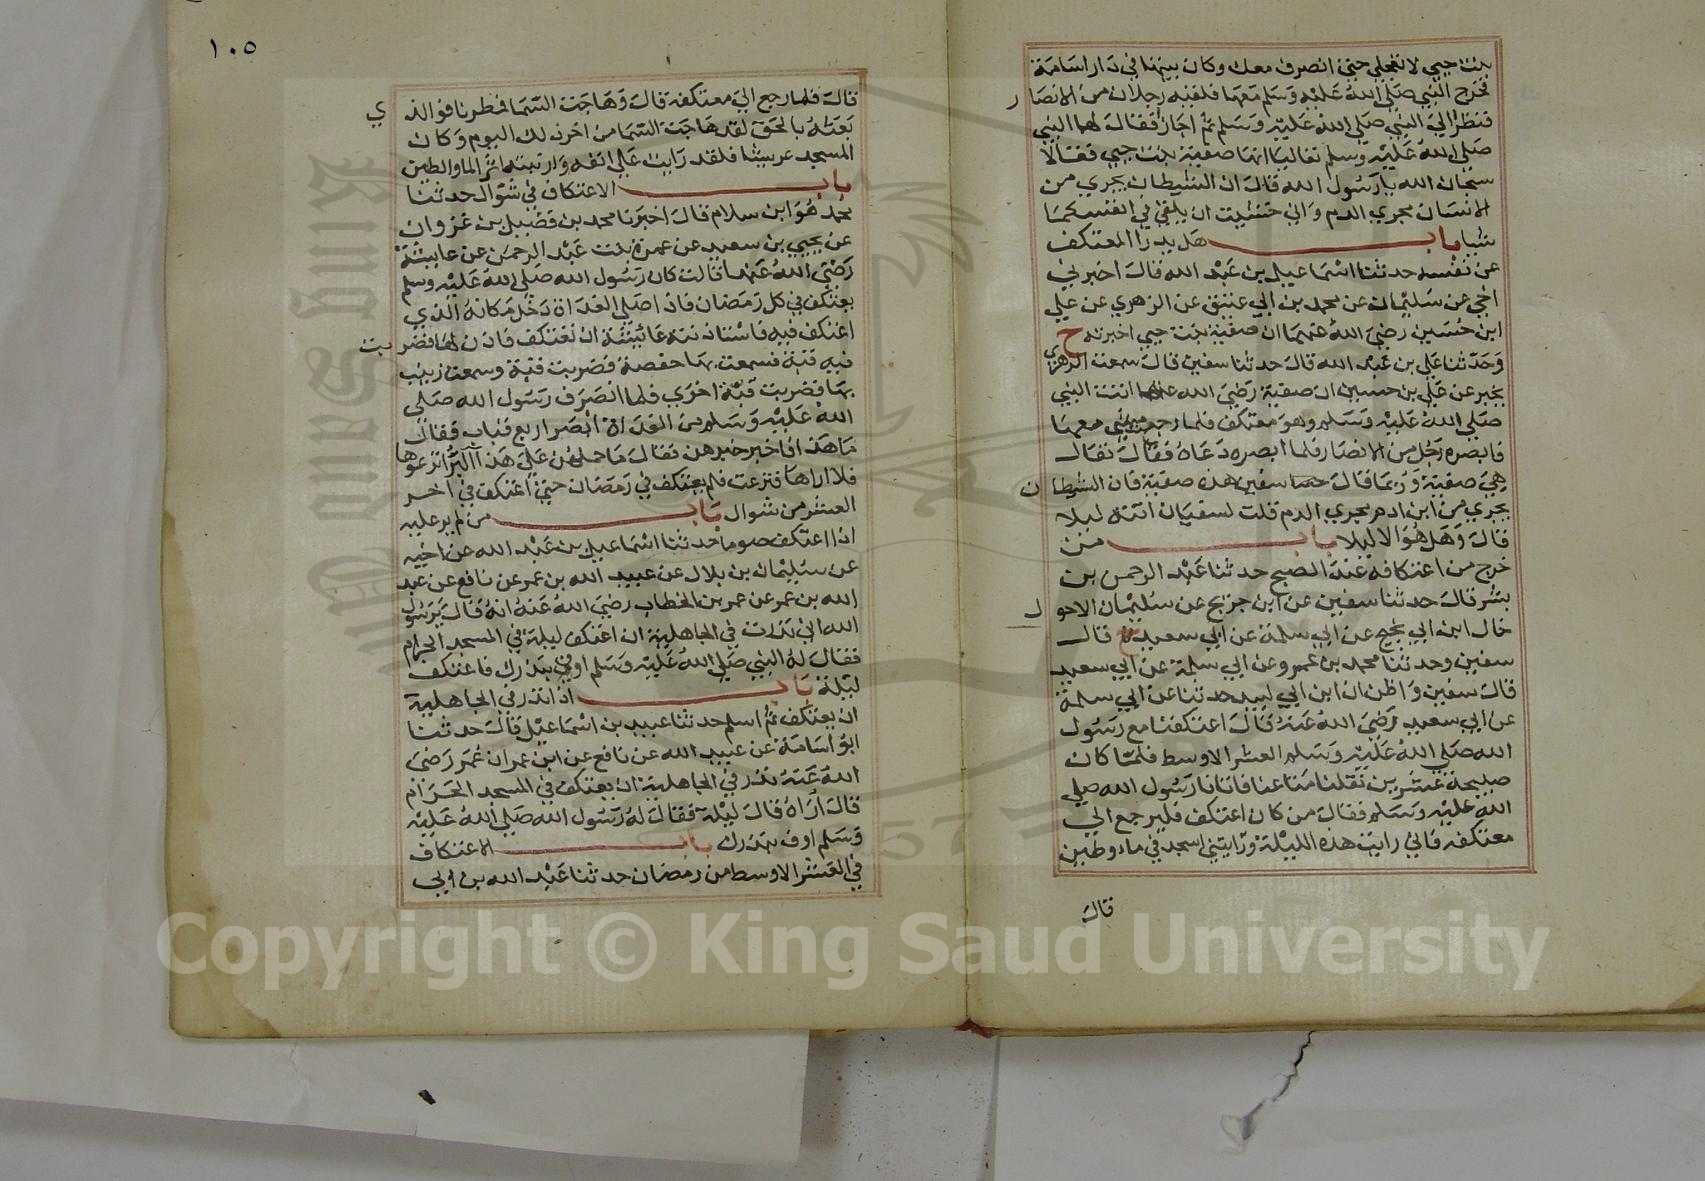 بنت حيي لا تعجلي حتى انصرف معك وكان بيتها في دار اسامة
فخرج النبي صلى الله عليه وسلم معها فلقيه رجلان من الانصار
فنظرا الى النبي صلى الله عليه وسلم ثم اجازا فقال لهما النبي
صلى الله عليه وسلم تعاليا انها صفية بنت حيي فقالا
سبحان الله يا رسول الله قال ان الشيطان يجري من
الانسان مجرى الدم واني خشيت ان يلقي في انفسكما
شيا باب هل يدرا المعتكف
عن نفسه حدثنا اسماعيل بن عبد الله قال اخبرني
اخي عن سليمان عن محمد بن ابي عتيق عن الزهري عن علي
ابن حسين رضي الله عنهما ان صفية بنت حيي اخبرته ح
وحدثنا علي بن عبد الله قال حدثنا سفين قال سمعت الزهري
يخبر عن علي بن حسين ان صفية رضي الله عنها اتت النبي
صلى الله عليه وسلم وهو معتكف فلما رجعت مشى معها
فابصره رجل من الانصار فلما ابصره دعاه فقال تعال
هي صفية وربما قال سفين هذه صفية فان الشيطان
يجري من ابن ادم مجرى الدم قلت لسفيان اتته ليلا
قال وهل هو الا ليلا باب من
خرج من اعتكافه عند الصبح حدثنا عبد الرحمن بن
بشر قال حدثنا سفين عن ابن جريج عن سليمان الاحول
خال ابن ابي نجيح عن ابي سلمة عن ابي سعيد ح قال
سفين وحدثنا محمد بن عمرو عن ابي سلمة عن ابي سعيد
قال سفين واظن ان ابن ابي لبيد حدثنا عن ابي سلمة
عن ابي سعيد رضي الله عنه قال اعتكفنا مع رسول
الله صلى الله عليه وسلم العشر الاوسط فلما كان
صبيحة عشرين نقلنا متاعنا فاتانا رسول الله صلى
الله عليه وسلم فقال من كان اعتكف فليرجع الى
معتكفه فاني رايت هذه الليلة ورايتني اسجد في ماء وطين
قال
١٠٥
قال فلما رجع الى معتكفه قال وهاجت السما فمطرنا فوالذي
بعثه بالحق لقد هاجت السما من اخر ذلك اليوم وكان
المسجد عريشا فلقد رايت على انفه وارنبته اثر الما والطين
باب الاعتكاف في شوال حدثنا
محمد هو ابن سلام قال اخبرنا محمد بن فضيل بن غزوان
عن يحيى بن سعيد عن عمرة بنت عبد الرحمن عن عايشة
رضي الله عنها قالت كان رسول الله صلى الله عليه وسلم
يعتكف في كل رمضان فاذا صلى الغداة دخل مكانه الذي
اعتكف فيه فاستاذنته عائشة ان تعتكف فاذن لها فضربت
فيه قبة فسمعت بها حفصة فضربت قبة وسمعت زينب
بها فضربت قبة اخرى فلما انصرف رسول الله صلى
الله عليه وسلم من الغداة ابصر اربع قباب فقال
ما هذا فاخبر خبرهن فقال ما حملهن على هذا آلبر انزعوها
فلا اراها فنزعت فلم يعتكف في رمضان حتى اعتكف في اخر
العشر من شوال باب من لم ير عليه
اذا اعتكف صوما حدثنا اسماعيل بن عبد الله عن اخيه
عن سليمان بن بلال عن عبيد الله بن عمر عن نافع عن عبد
الله بن عمر عن عمر بن الخطاب رضي الله عنه انه قال يرسول
الله اني نذرت في الجاهلية ان اعتكف ليلة في المسجد الحرام
فقال له النبي صلى الله عليه وسلم اوفي بنذرك فاعتكف
ليلة باب اذا نذر في الجاهلية
ان يعتكف ثم اسلم حدثنا عبيد بن اسماعيل قال حدثنا
ابو اسامة عن عبيد الله عن نافع عن ابن عمر ان عمر رضي
الله عنه نذر في الجاهلية ان يعتكف في المسجد الحرام
قال اراه قال ليلة فقال له رسول الله صلى الله عليه
وسلم اوف بنذرك باب الاعتكاف
في العشر الاوسط من رمضان حدثنا عبد الله بن ابي
Copyright © King Saud University
King Saud University
1957